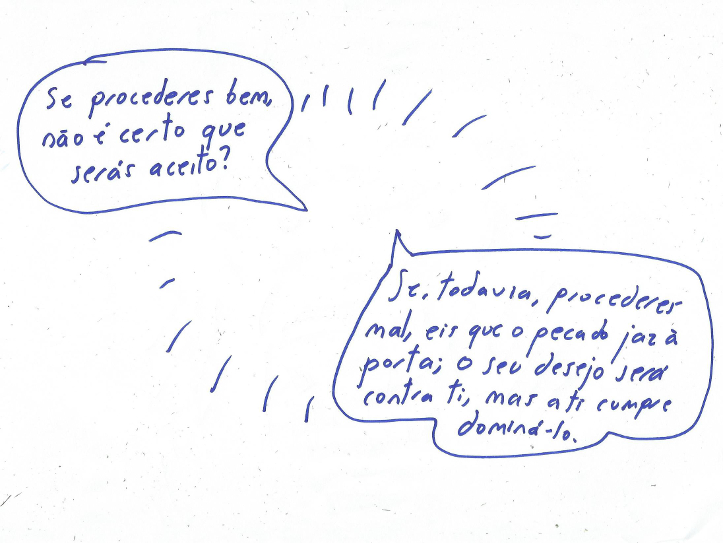 Se procederes bem,
não é certo que
serás aceito?
Se, todavia, procederes
mal, eis que o pecado jaz à
porta; o seu desejo será
contra ti, mas a ti cumpre
dominá-lo.